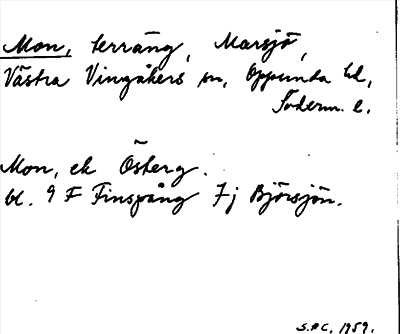 Mon, terräng, Marsjö,
Västra Vingåkers sn, Oppunda hd,
Söderm. l.
Mon, ek Österg.
bl. 9 F Finspång 7j Björsjön.
S.P.C. 1959.